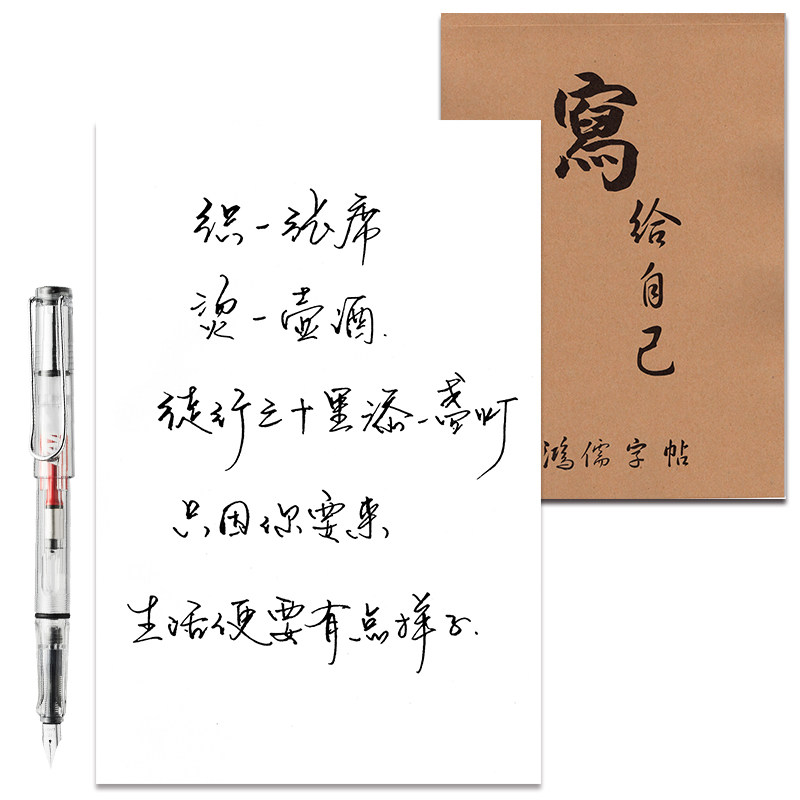 织一张席
烫一壶酒.
徒行三十里添一盏灯
只因你要来
生活便要有点样子.
寫
给
自
己
鸿儒字帖